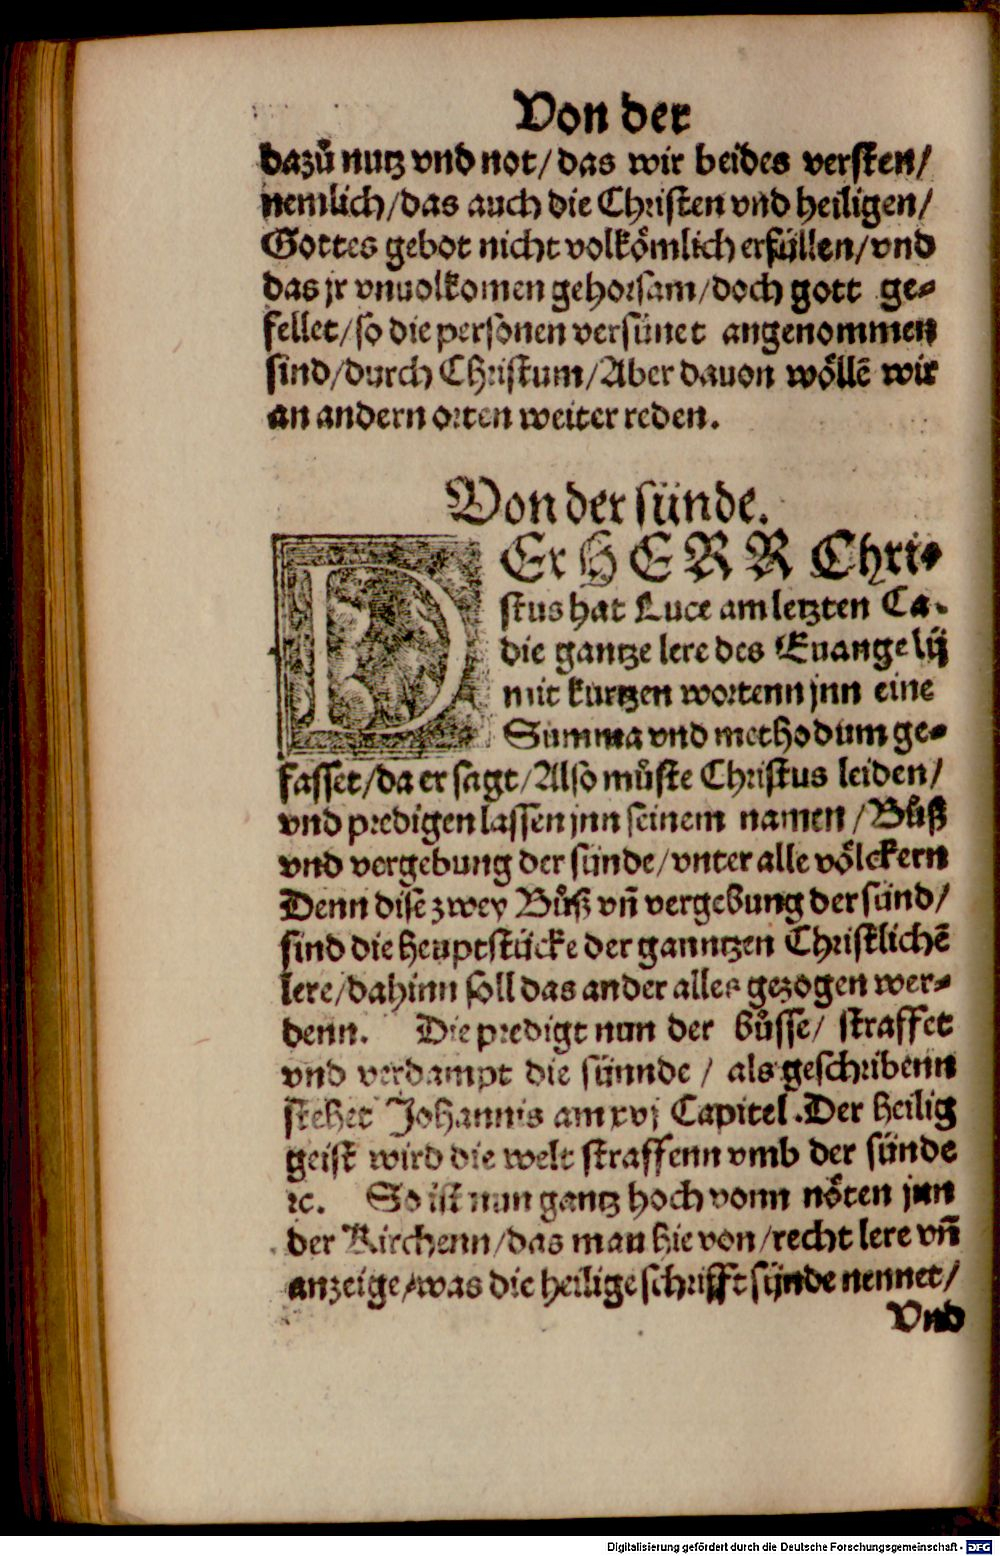 Von der
dazů nutz vnd not/ das wir beides versten/
nemlich/das auch die Christen vnd heiligen/
Gottes gebot nicht volkömlich erfüllen/vnd
das jr vnuolkomen gehorsam/doch gott ge-
fellet/so die personen versünet angenommen
sind/durch Christum/Aber dauon wöllē wir
an andern orten weiter reden.
Von der sünde.
DEr HERR Chri-
stus hat Luce am letzten Ca.
die gantze lere des Euangelij
mit kurtzen wortenn jnn eine
Summa vnd methodum ge-
fasset/da er sagt/Also můste Christus leiden/
vnd predigen lassen jnn seinem namen/Bůß
vnd vergebung der sünde/vnter alle völckern
Denn dise zwey Bůß vn̄ vergebung der sünd/
sind die heuptstücke der ganntzen Christlichē
lere/dahinn soll das ander alles gezogen wer-
denn. Die predigt nun der bůsse/ straffet
vnd verdampt die sünnde / als geschribenn
stehet Johannis am xvj Capitel.Der heilig
geist wird die welt straffenn vmb der sünde
ꝛc. So ist nun gantz hoch vonn nöten jnn
der Kirchenn/das man hie von/recht lere vn̄
anzeige/was die heilige schrifft sünde nennet/
Vnd
Digitalisierung gefördert durch die Deutsche Forschungsgemeinschaft - DFG